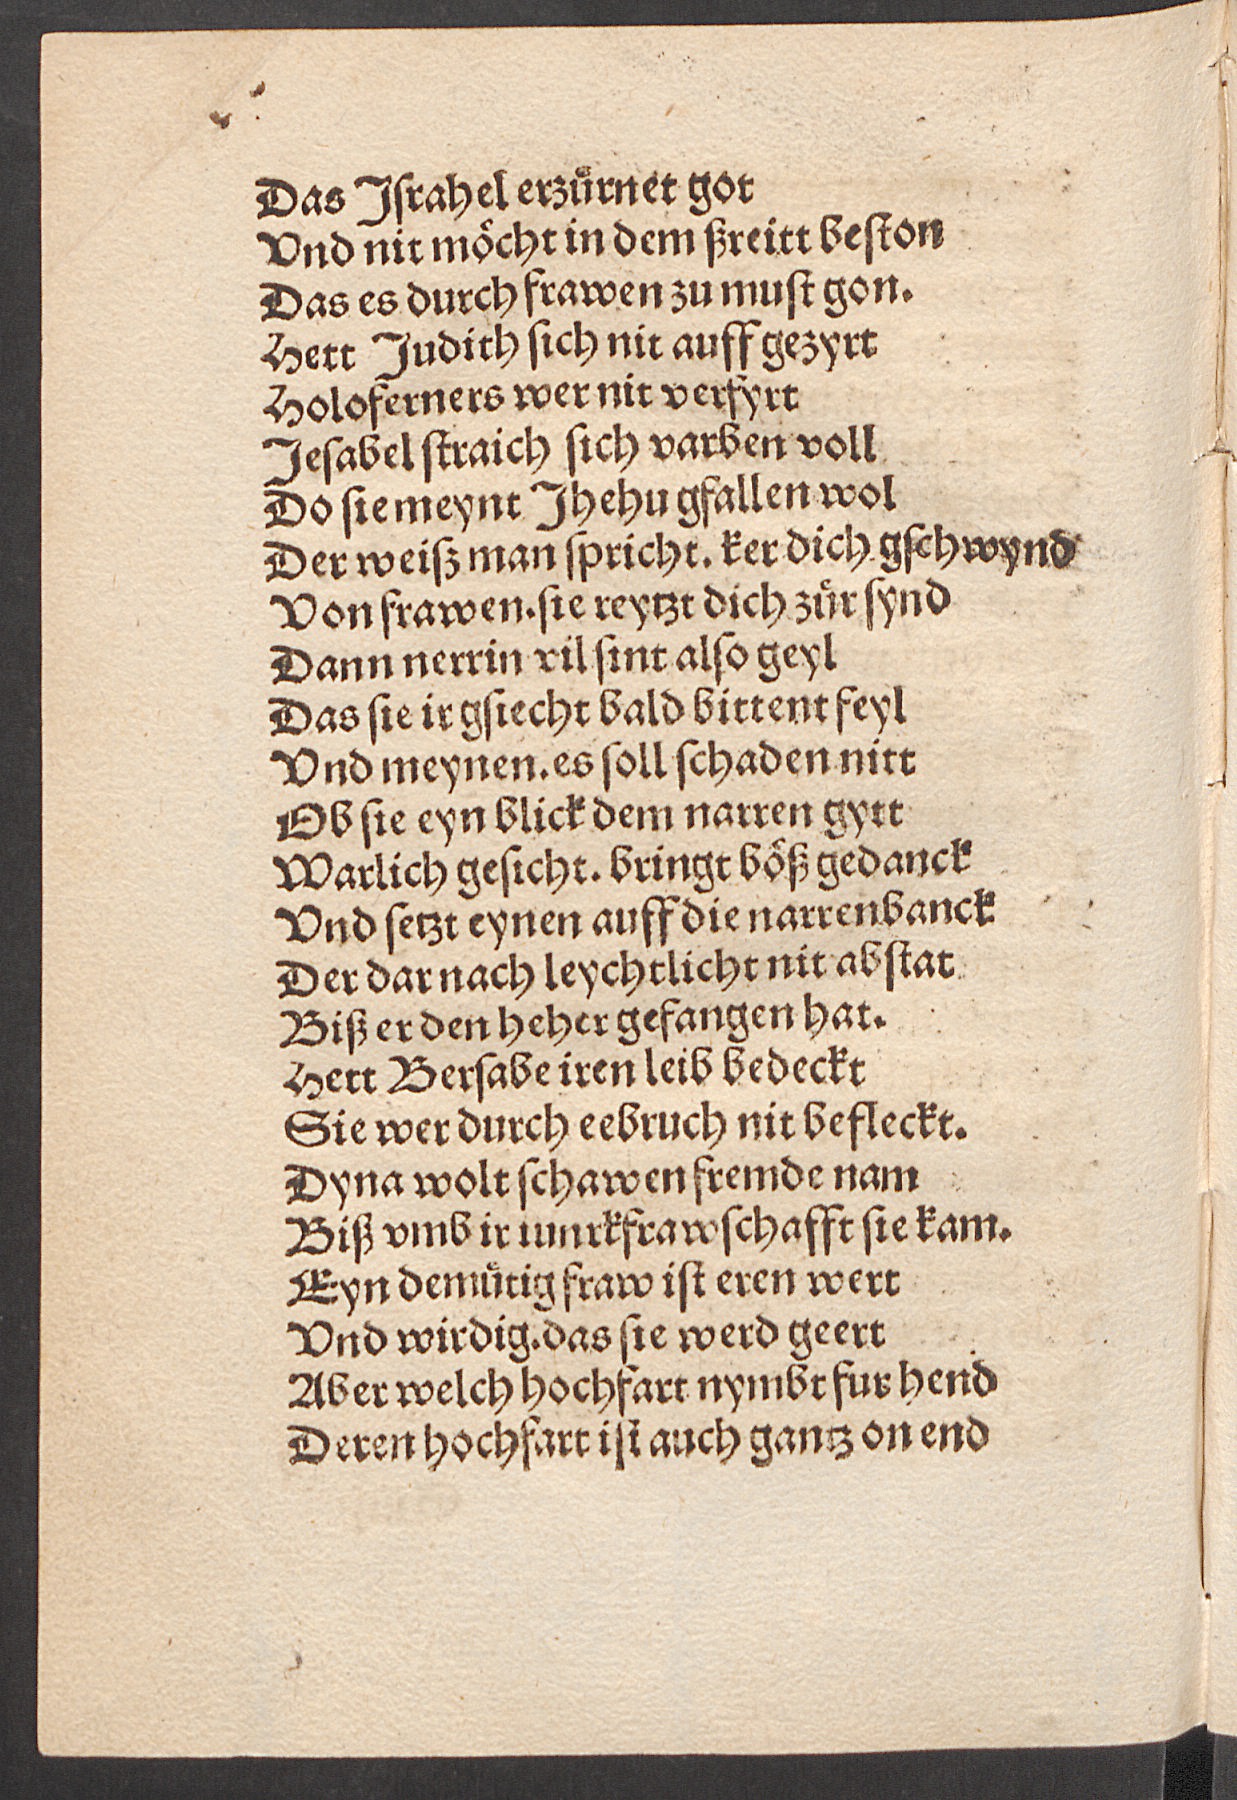 Das Jſrahel erzuͤrnet got
Vnd nit moͤcht in dem ßreitt beſton
Das es durch frawen zu muſt gon.
Hett Judith ſich nit auff gezyrt
Holoferners wer nit verfyrt
Jeſabel ſtraich ſich varben voll
Do ſie meynt Jhehu gfallen wol
Der weiſz man ſpricht. ker dich gſchwynd
Von frawen. ſie reytzt dich zuͤr ſynd
Dann nerrin vil ſint alſo geyl
Das ſie ir gſiecht bald bittent feyl
Vnd meynen. es ſoll ſchaden nitt
Ob ſie eyn blick dem narren gytt
Warlich geſicht. bringt boͤß gedanck
Vnd ſetzt eynen auff die narrenbanck
Der dar nach leychtlicht nit abſtat
Biß er den heher gefangen hat.
Hett Berſabe iren leib bedeckt
Sie wer durch eebruch nit befleckt.
Dyna wolt ſchawen fremde nam
Biß vmb ir iunrkfrawſchafft ſie kam.
Eyn demuͤtig fraw iſt eren wert
Vnd wirdig. das ſie werd geert
Aber welch hochfart nymbt fur hend
Deren hochfart iſt auch gantz on end